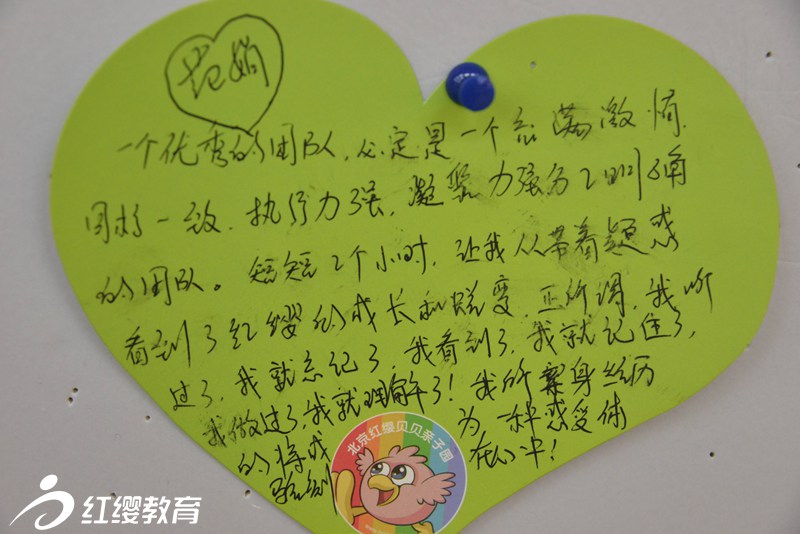 一个优秀的团队,必定是一个充满激情
目标一致、执行力强、凝聚力强分工明确
的团队。短短2个小时,让我从带着疑惑
看到了红缨的成长和蜕变,正所谓,我听
过了,我就忘记了,我看到了,我就记住了,
我做过了,我就理解了!我所亲身经历
的将成为一种感受体
验刻在心中!
北京红缨贝贝亲子园
红缨教育